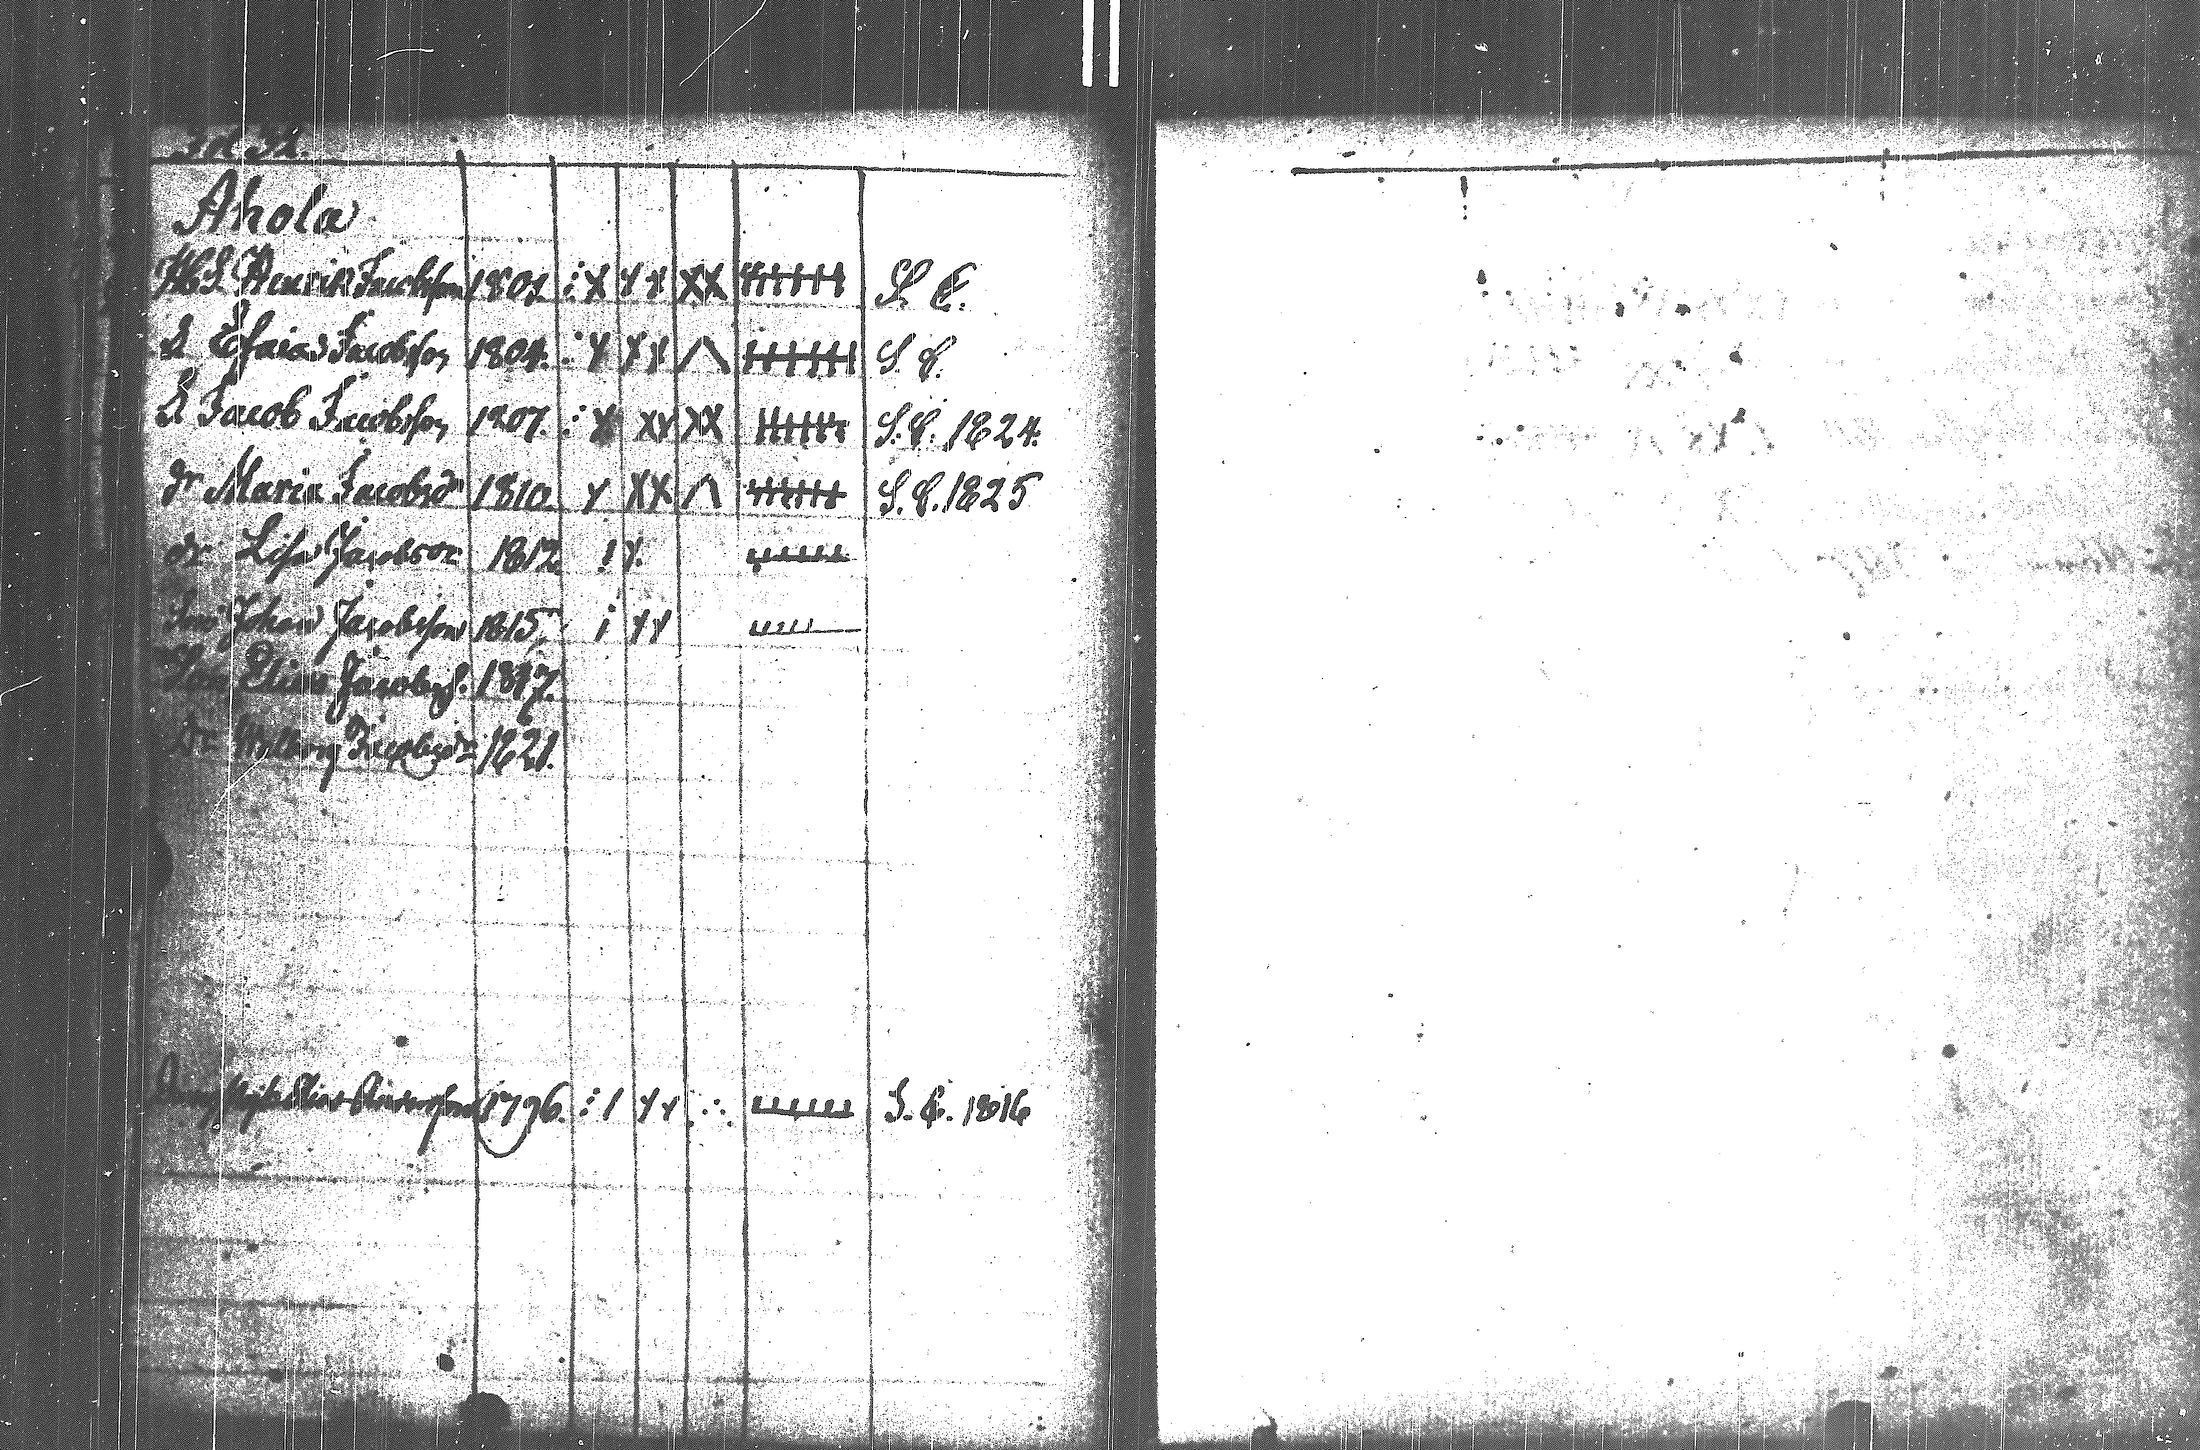 Ahola
Henrik Jacobsson 1801. S. C.
Esaias Jacobsson 1804. S. C.
S Jacob Jacobsson 1807. S. C. 1824.
dr Maria Jacobsdr 1810. S. C. 1825
dr Lisa Jacobsdr 1812.
Son Johan Jacobsson 1815.
Son Elias Jacobss. 1817.
Dr Walborg Jacobsdr 1821.
Elias 1796. S. C. 1816